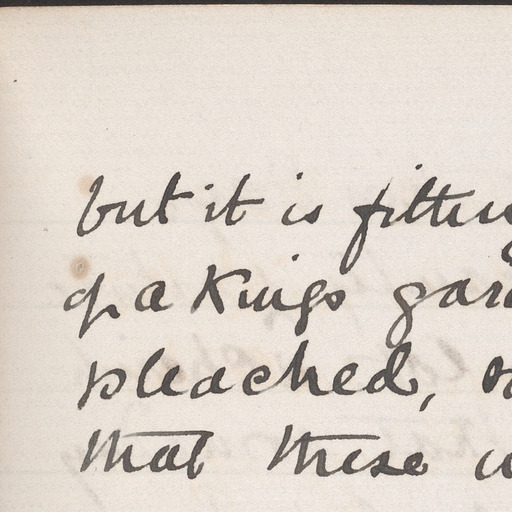 but it is fitting
of a Kings gard
pleached,
that these